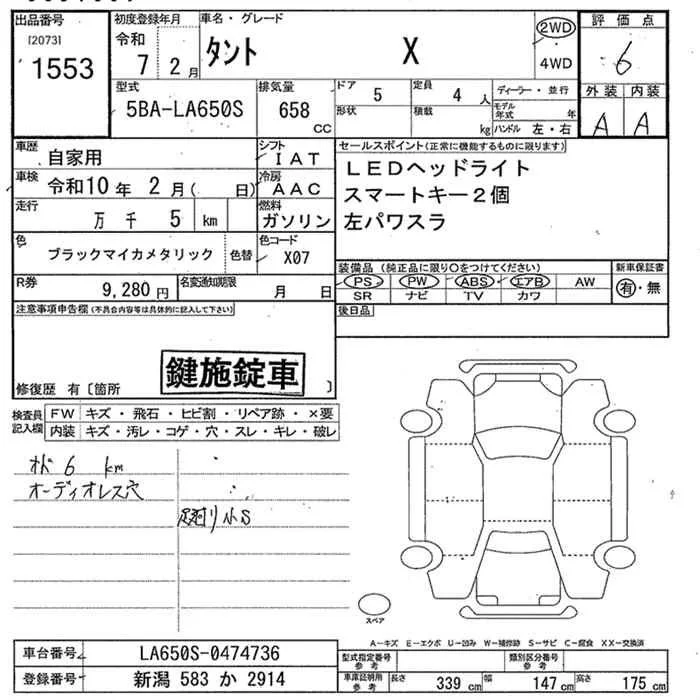 出品番号
[2073]
1553
初度登録年月
令和
7 2月
車名・グレード
タント X
2WD
4WD
評価点
6
外装 内装
A A
型式
5BA-LA650S
排気量
658
CC
ドア
5
定員
4 人
形状
積載
kg
ディーラー・並行
モデル年式 年
ハンドル 左・右
車歴
自家用
シフト
IAT
車検
令和10年 2月( 日)
冷房
AAC
走行
万 千 5 km
燃料
ガソリン
色
ブラックマイカメタリック
色替
色コード
X07
R券
9,280円
名変通知期限
月 日
セールスポイント(正常に機能するものに限ります)
LEDヘッドライト
スマートキー2個
左パワスラ
装備品(純正品に限り○をつけてください)
PS PW ABS エアB AW
SR ナビ TV カワ
新車保証書
有・無
後日品
注意事項申告欄(不具合内容等は具体的に記入して下さい)
鍵施錠車
修復歴 有〔箇所 〕
検査員記入欄
FW キズ・飛石・ヒビ割・リペア跡・×要
内装 キズ・汚レ・コゲ・穴・スレ・キレ・破レ
オド 6 km
オーディオレス穴
小S
スペア
A-キズ E-エクボ U-凹み W-補修跡 S-サビ C-腐食 XX-交換済
車台番号
LA650S-0474736
登録番号
新潟 583 か 2914
型式指定番号
参考
類別区分番号
参考
車庫証明用
参考
長さ 339 cm
幅 147 cm
高さ 175 cm